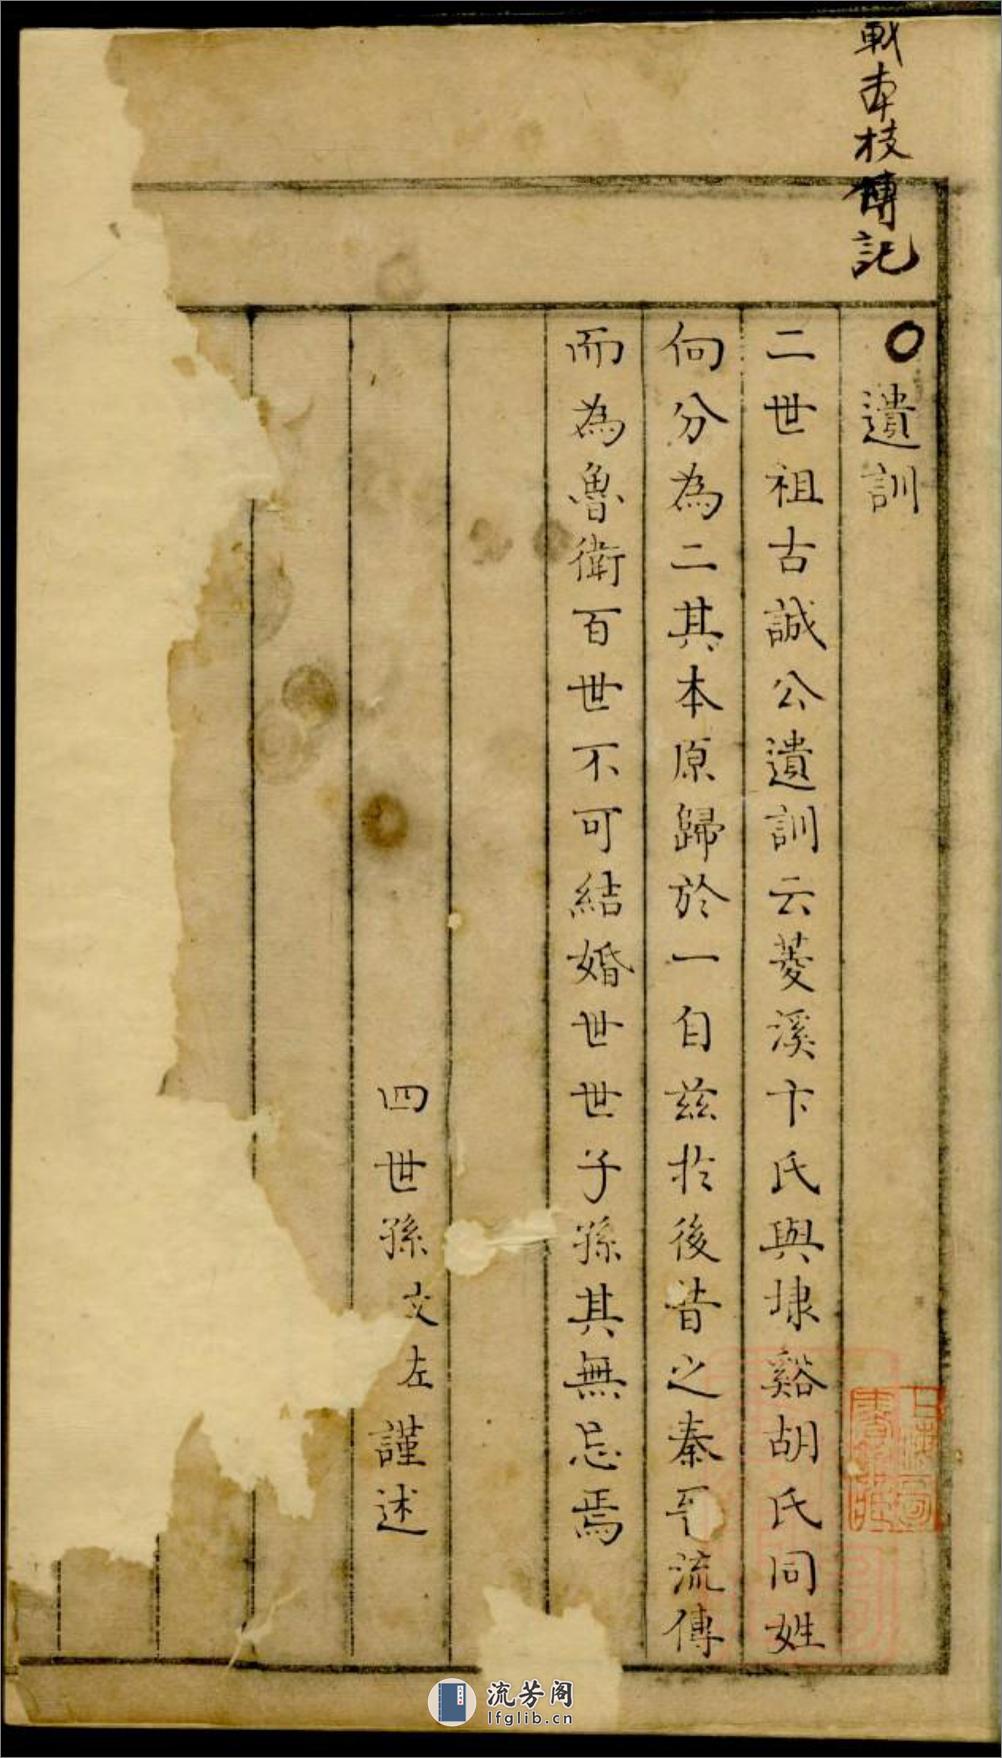 本枝傳記
○遺訓
二世祖古誠公遺訓云菱溪卞氏與埭谿胡氏同姓
向分為二其本原歸於一自兹扵後昔之秦流傳
而為魯衛百世不可結婚世世子孫其無忘焉
四世孫文左謹述
流芳阁
lfglib.cn